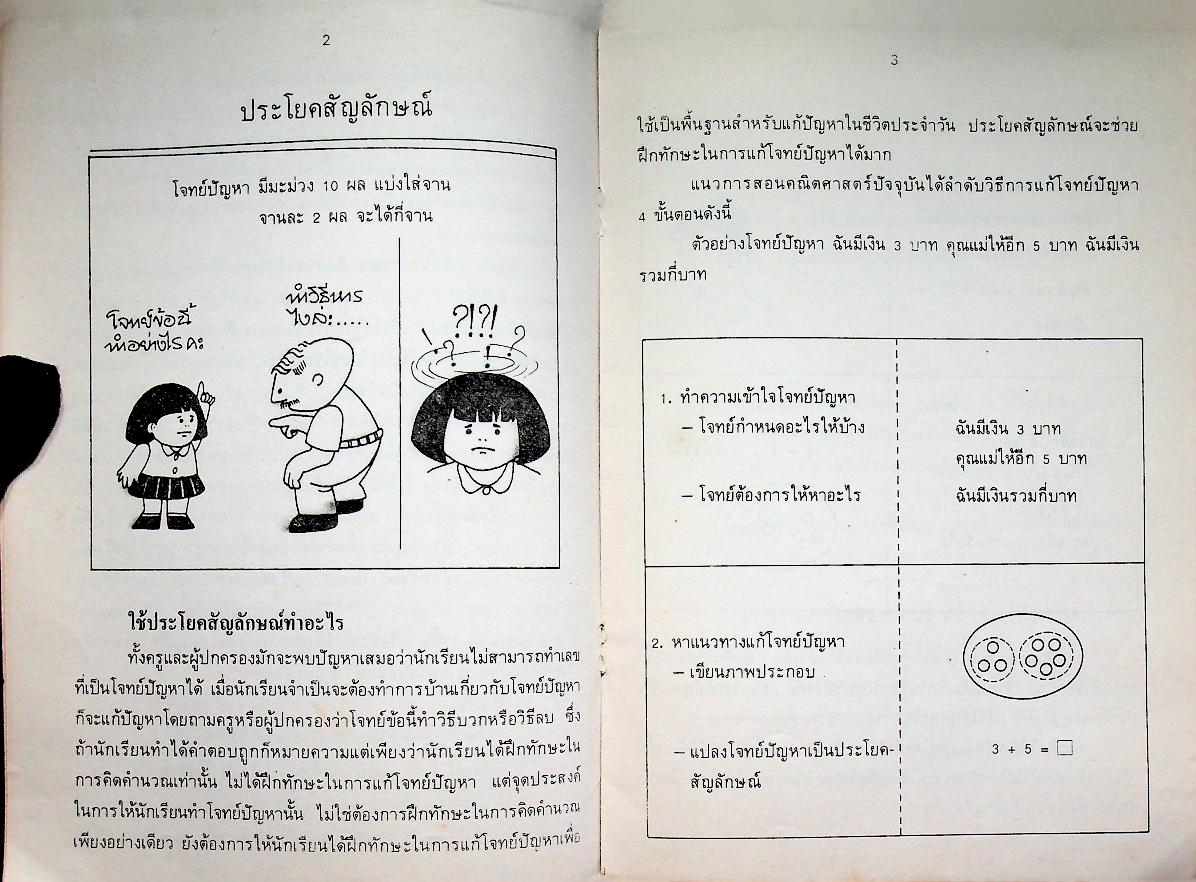 2
ประโยคสัญลักษณ์
โจทย์ปัญหา มีมะม่วง 10 ผล แบ่งใส่จาน
จานละ 2 ผล จะได้กี่จาน
โจทย์ข้อนี้
ทำอย่างไรคะ
ทำวิธีหาร
ไงล่ะ.....
?!?!
ใช้ประโยคสัญลักษณ์ทำอะไร
ทั้งครูและผู้ปกครองมักจะพบปัญหาเสมอว่านักเรียนไม่สามารถทำเลข
ที่เป็นโจทย์ปัญหาได้ เมื่อนักเรียนจำเป็นจะต้องทำการบ้านเกี่ยวกับโจทย์ปัญหา
ก็จะแก้ปัญหาโดยถามครูหรือผู้ปกครองว่าโจทย์ข้อนี้ทำวิธีบวกหรือวิธีลบ ซึ่ง
ถ้านักเรียนทำได้คำตอบถูกก็หมายความแต่เพียงว่านักเรียนได้ฝึกทักษะใน
การคิดคำนวณเท่านั้น ไม่ได้ฝึกทักษะในการแก้โจทย์ปัญหา แต่จุดประสงค์
ในการให้นักเรียนทำโจทย์ปัญหานั้น ไม่ใช่ต้องการฝึกทักษะในการคิดคำนวณ
เพียงอย่างเดียว ยังต้องการให้นักเรียนได้ฝึกทักษะในการแก้โจทย์ปัญหาเพื่อ
3
ใช้เป็นพื้นฐานสำหรับแก้ปัญหาในชีวิตประจำวัน ประโยคสัญลักษณ์จะช่วย
ฝึกทักษะในการแก้โจทย์ปัญหาได้มาก
แนวการสอนคณิตศาสตร์ปัจจุบันได้ลำดับวิธีการแก้โจทย์ปัญหา
4 ขั้นตอนดังนี้
ตัวอย่างโจทย์ปัญหา ฉันมีเงิน 3 บาท คุณแม่ให้อีก 5 บาท ฉันมีเงิน
รวมกี่บาท
1. ทำความเข้าใจโจทย์ปัญหา
– โจทย์กำหนดอะไรให้บ้าง
ฉันมีเงิน 3 บาท
คุณแม่ให้อีก 5 บาท
– โจทย์ต้องการให้หาอะไร
ฉันมีเงินรวมกี่บาท
2. หาแนวทางแก้โจทย์ปัญหา
– เขียนภาพประกอบ
– แปลงโจทย์ปัญหาเป็นประโยค-
สัญลักษณ์
3 + 5 = □